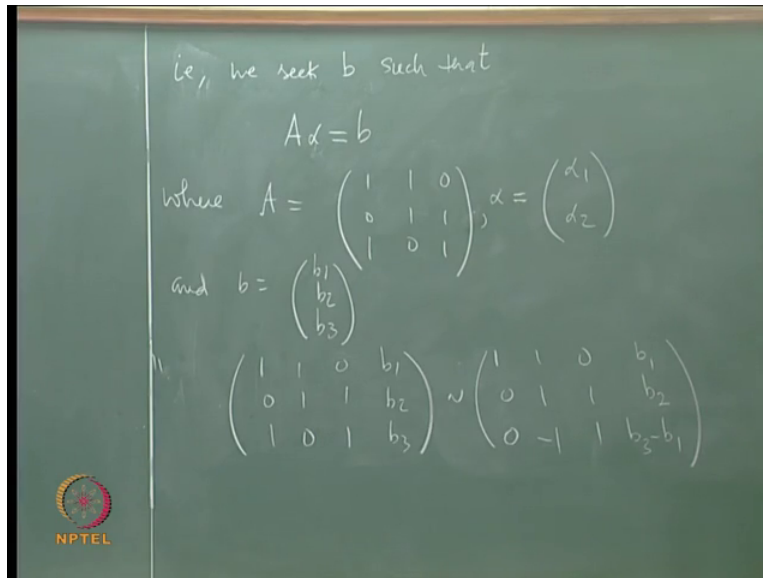 ie, we seek b such that
Aα = b
where A = ( 1 1 0
0 1 1
1 0 1 ), α = ( α1
α2 )
and b = ( b1
b2
b3 )
( 1 1 0 b1
0 1 1 b2
1 0 1 b3 ) ~ ( 1 1 0 b1
0 1 1 b2
0 -1 1 b3-b1 )
NPTEL